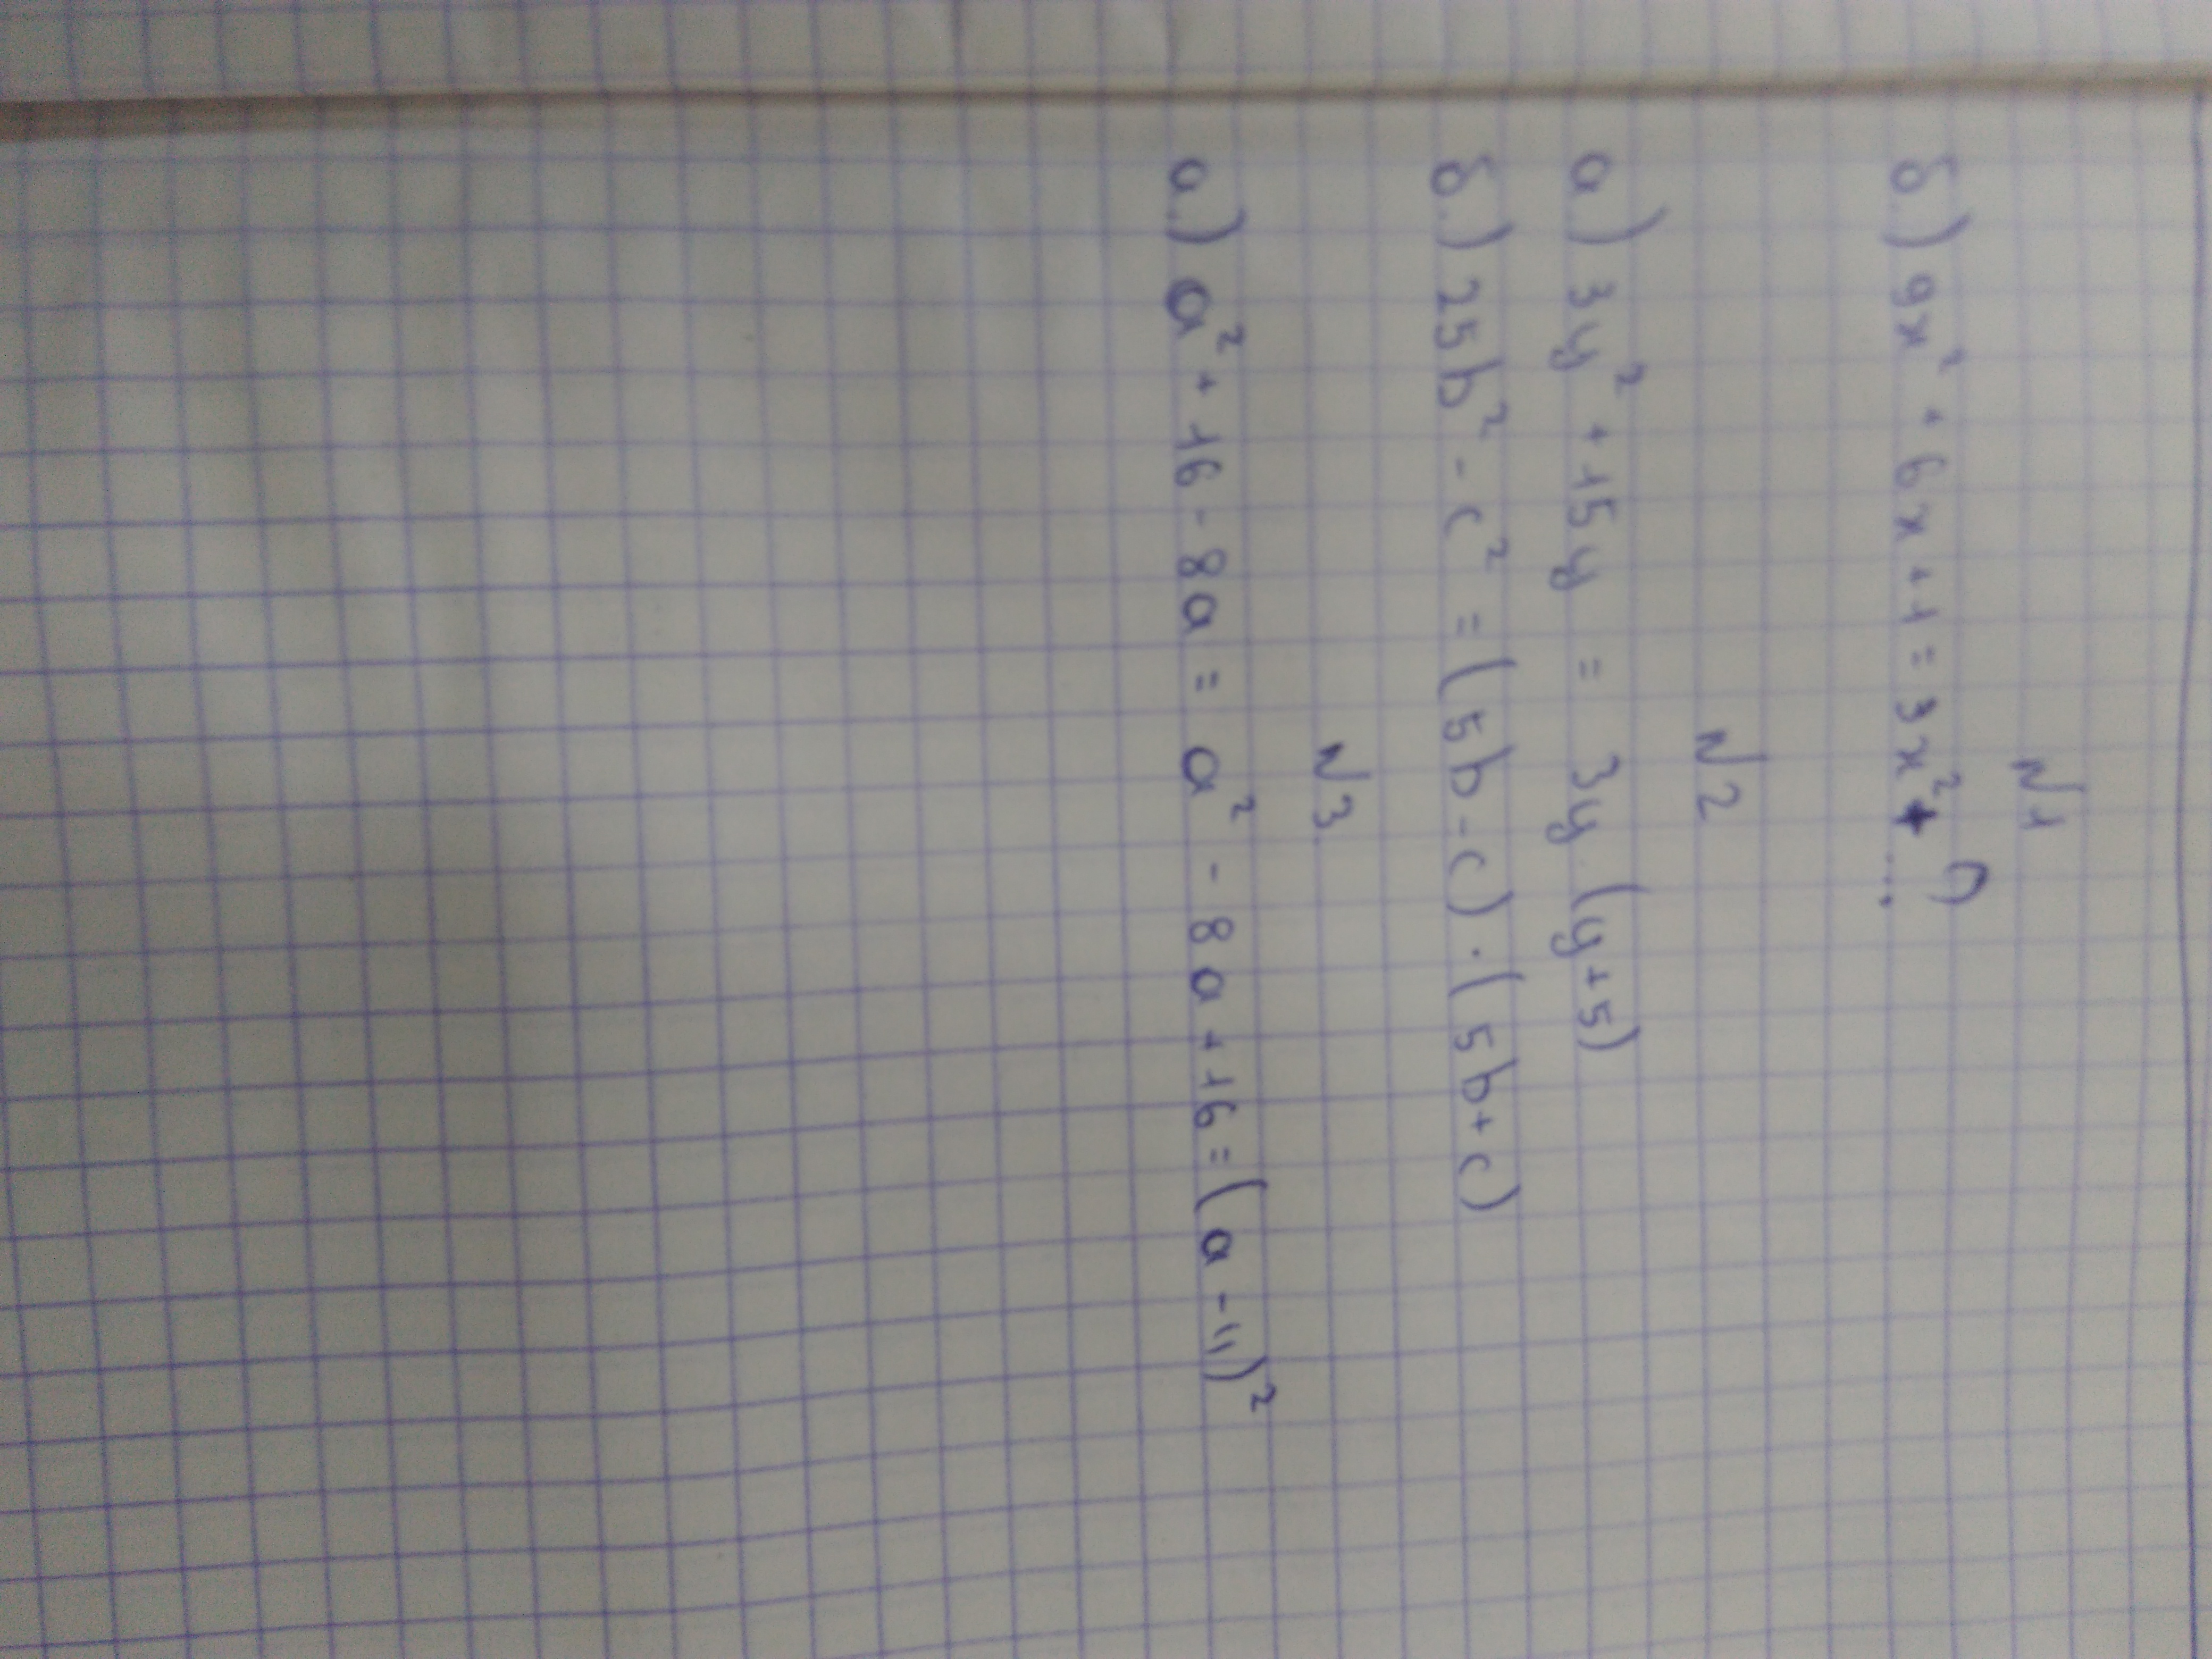 N1
б.) 9x² + 6x + 1 = 3x² + ...
N2
а.) 3y² + 15y = 3y (y+5)
б.) 25b² - c² = (5b - c) · (5b + c)
N3.
а.) a² + 16 - 8a = a² - 8a + 16 = (a - 4)²